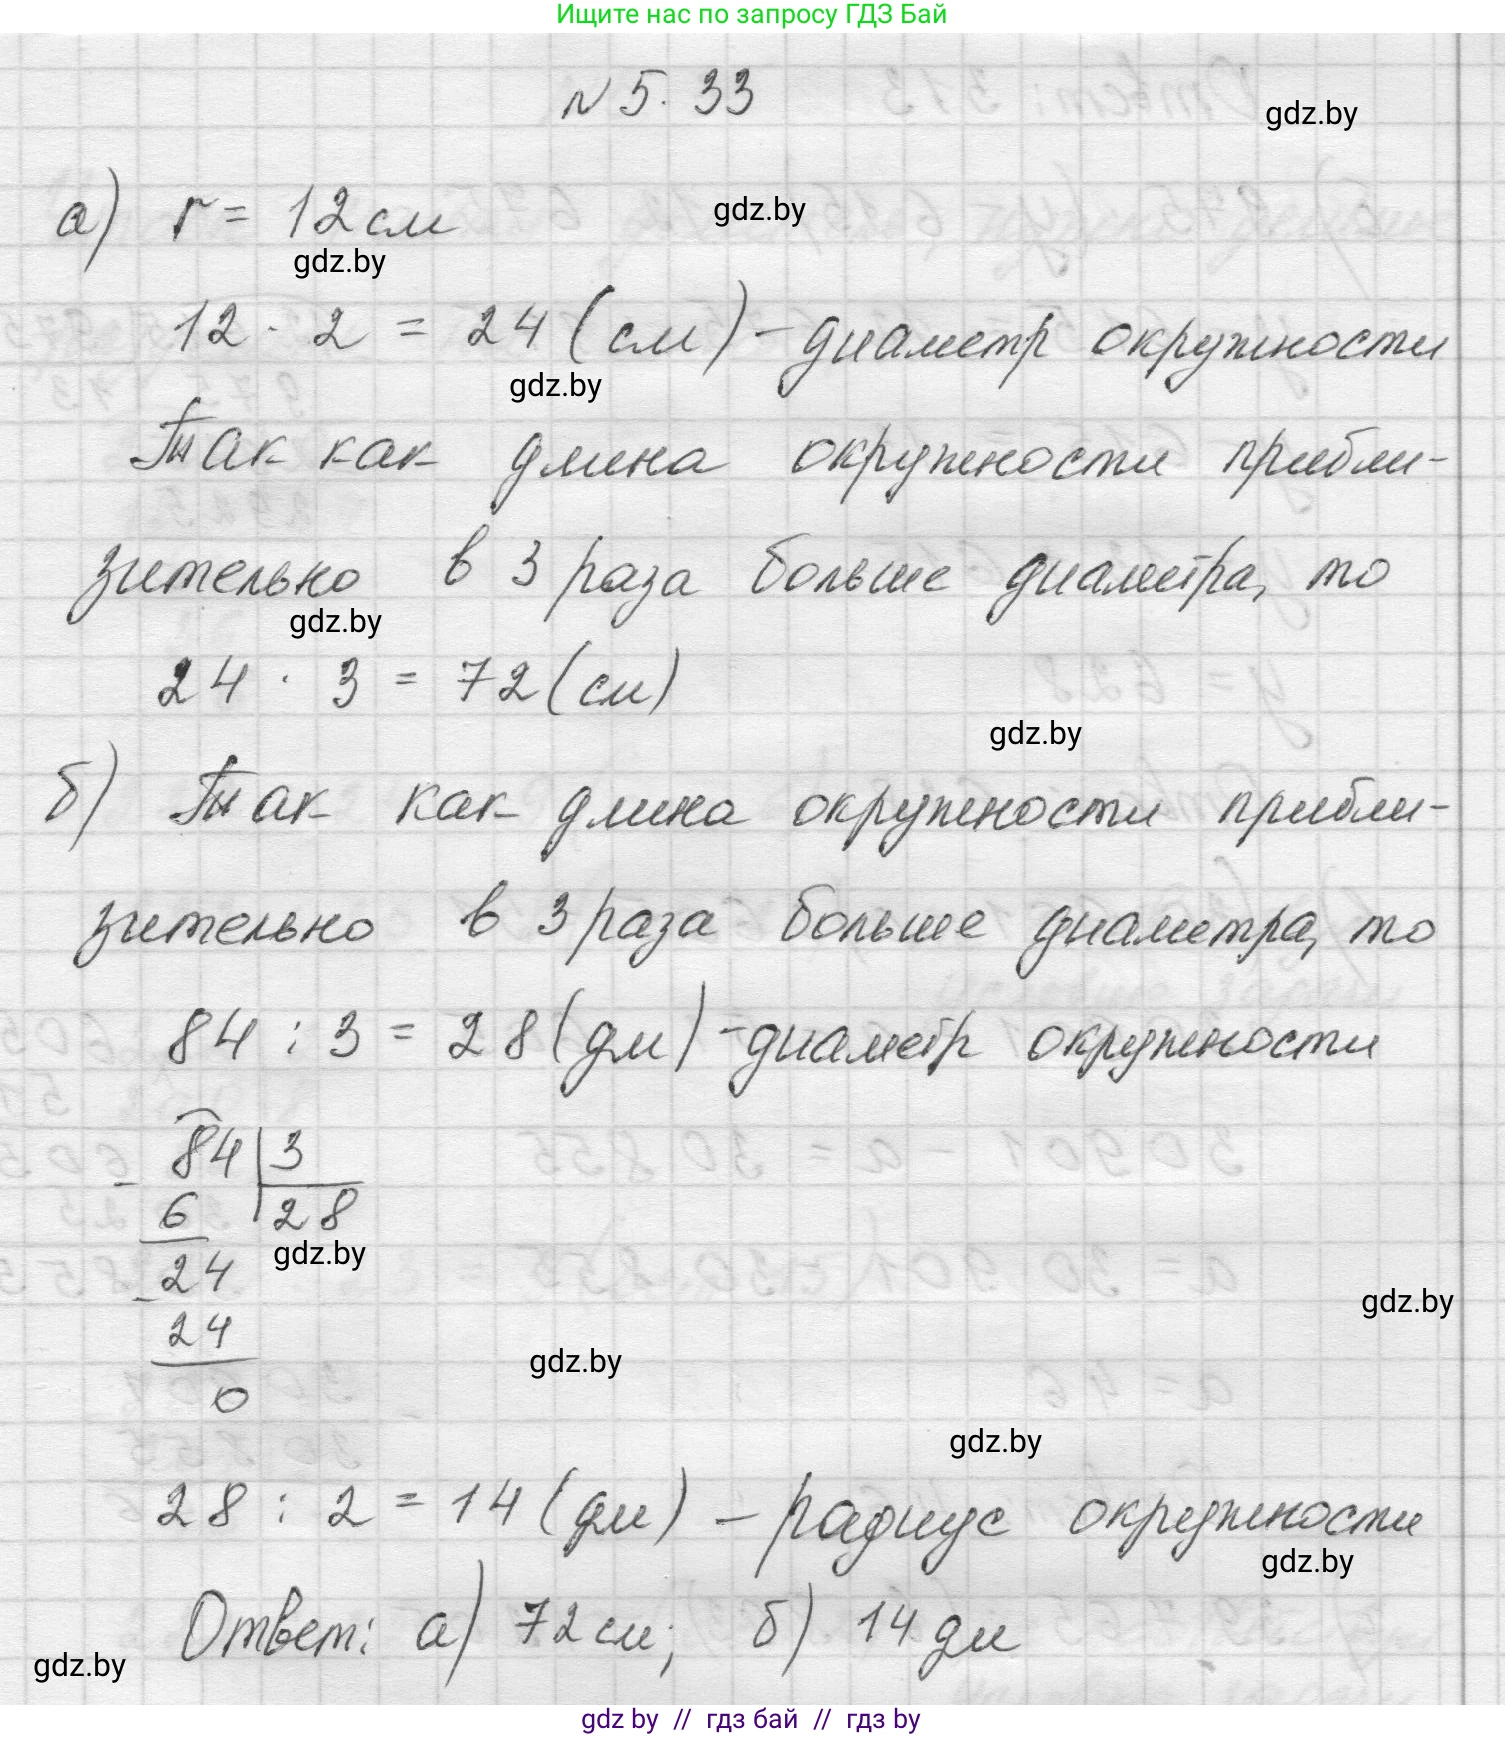 Ищите нас по запросу ГДЗ Бай
N 5. 33
gdz.by
а) r = 12 см
gdz.by
gdz.by
12 · 2 = 24 (см) - диаметр окружности
gdz.by
Так как длина окружности прибли-
зительно в 3 раза больше диаметра, то
gdz.by
24 · 3 = 72 (см)
gdz.by
б) Так как длина окружности прибли-
зительно в 3 раза больше диаметра, то
84 : 3 = 28 (дм) - диаметр окружности
84 | 3
- 6 28
gdz.by
24
gdz.by
- 24
gdz.by
0
gdz.by
28 : 2 = 14 (дм) - радиус окружности
gdz.by
Ответ: а) 72 см; б) 14 дм
gdz.by
gdz by // гдз бай // гдз by